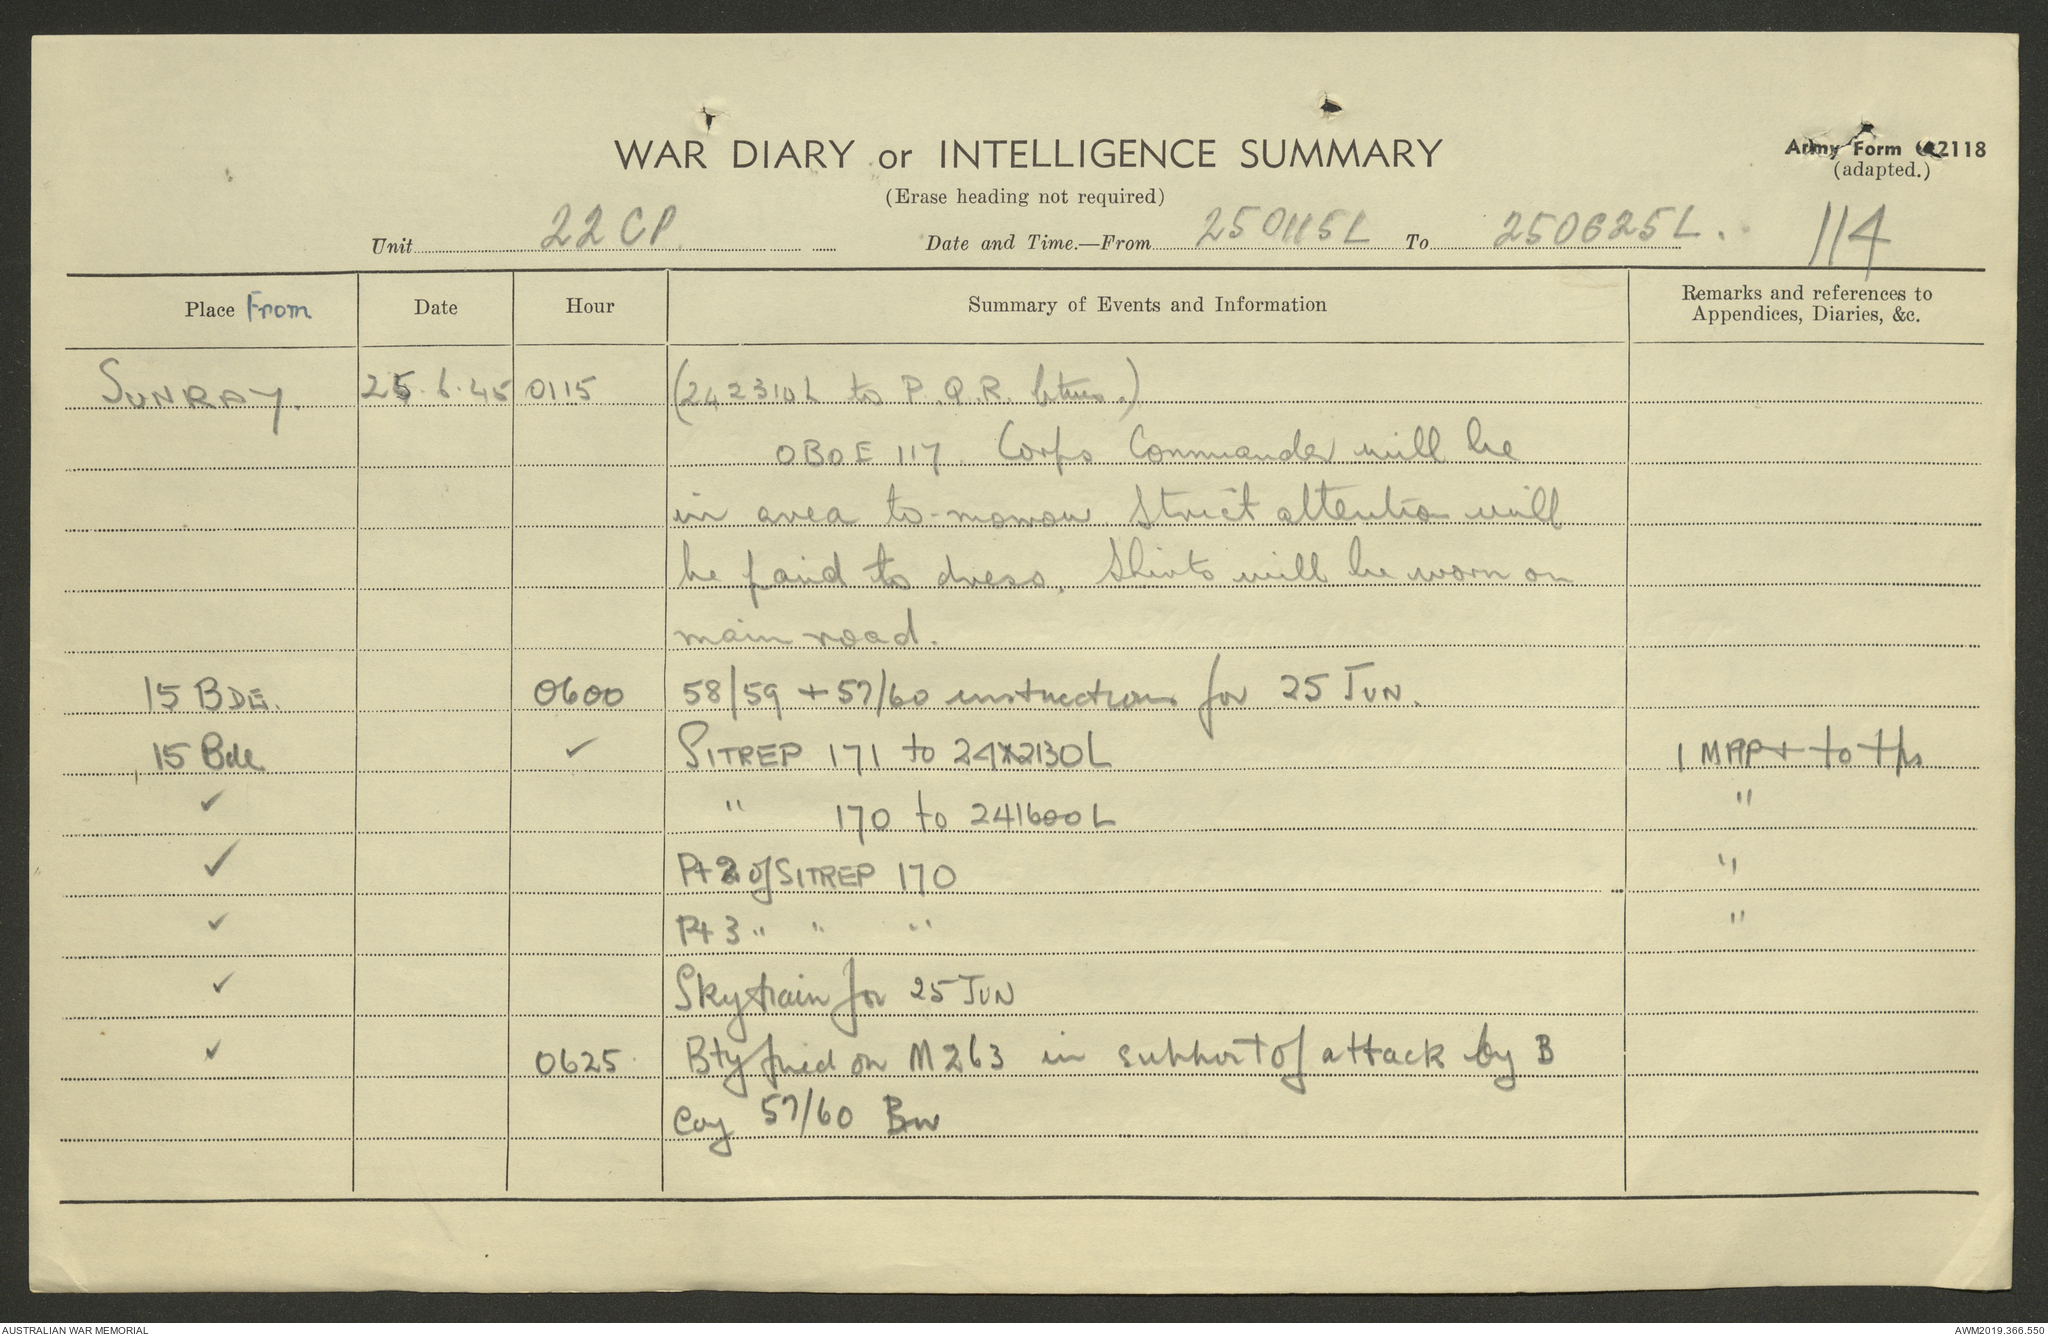 WAR DIARY or INTELLIGENCE SUMMARY
(Erase heading not required)
Army Form C.2118
(adapted.)
114
Unit 22 CP Date and Time.—From 250115L To 250625L.
Place From Date Hour Summary of Events and Information Remarks and references to Appendices, Diaries, &c.
SUNRAY. 25.6.45 0115 (242310L to P.Q.R. btys.)
OBOE 117 Corps Commander will be
in area to-morrow. Strict attention will
be paid to dress. Shirts will be worn on
main road.
15 BDE. 0600 58/59 + 57/60 instructions for 25 JUN.
15 Bde ✓ SITREP 171 to 242130L 1 MAP+ to tps
✓ " 170 to 241600L "
✓ Pt 2 of SITREP 170 "
✓ Pt 3 " " " "
✓ Skytrain for 25 JUN
✓ 0625 Bty fired on M263 in support of attack by B
Coy 57/60 Bn
AUSTRALIAN WAR MEMORIAL
AWM2019.366.550